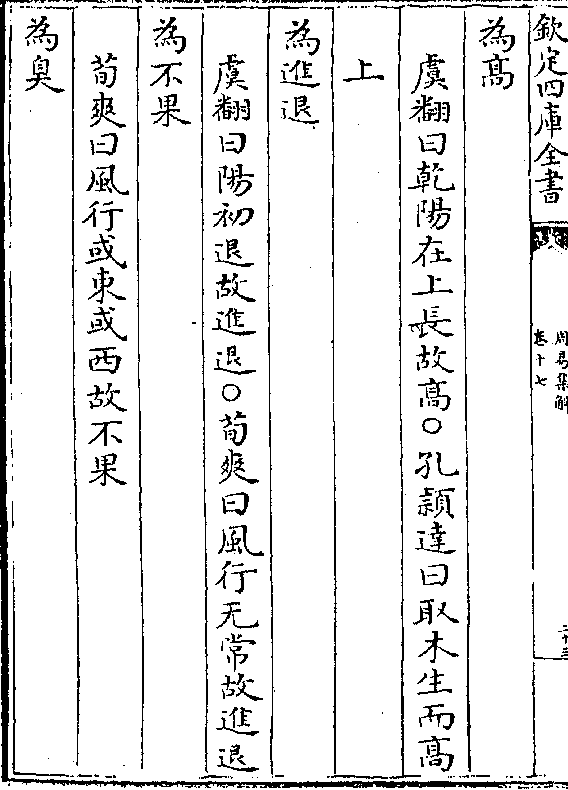 欽定四庫全書
周易集解
卷十七
為髙
虞翻曰乾陽在上長故髙○孔穎達曰取木生而髙
上
為進退
虞翻曰陽初退故進退○荀爽曰風行无常故進退
為不果
荀爽曰風行或東或西故不果
為臭